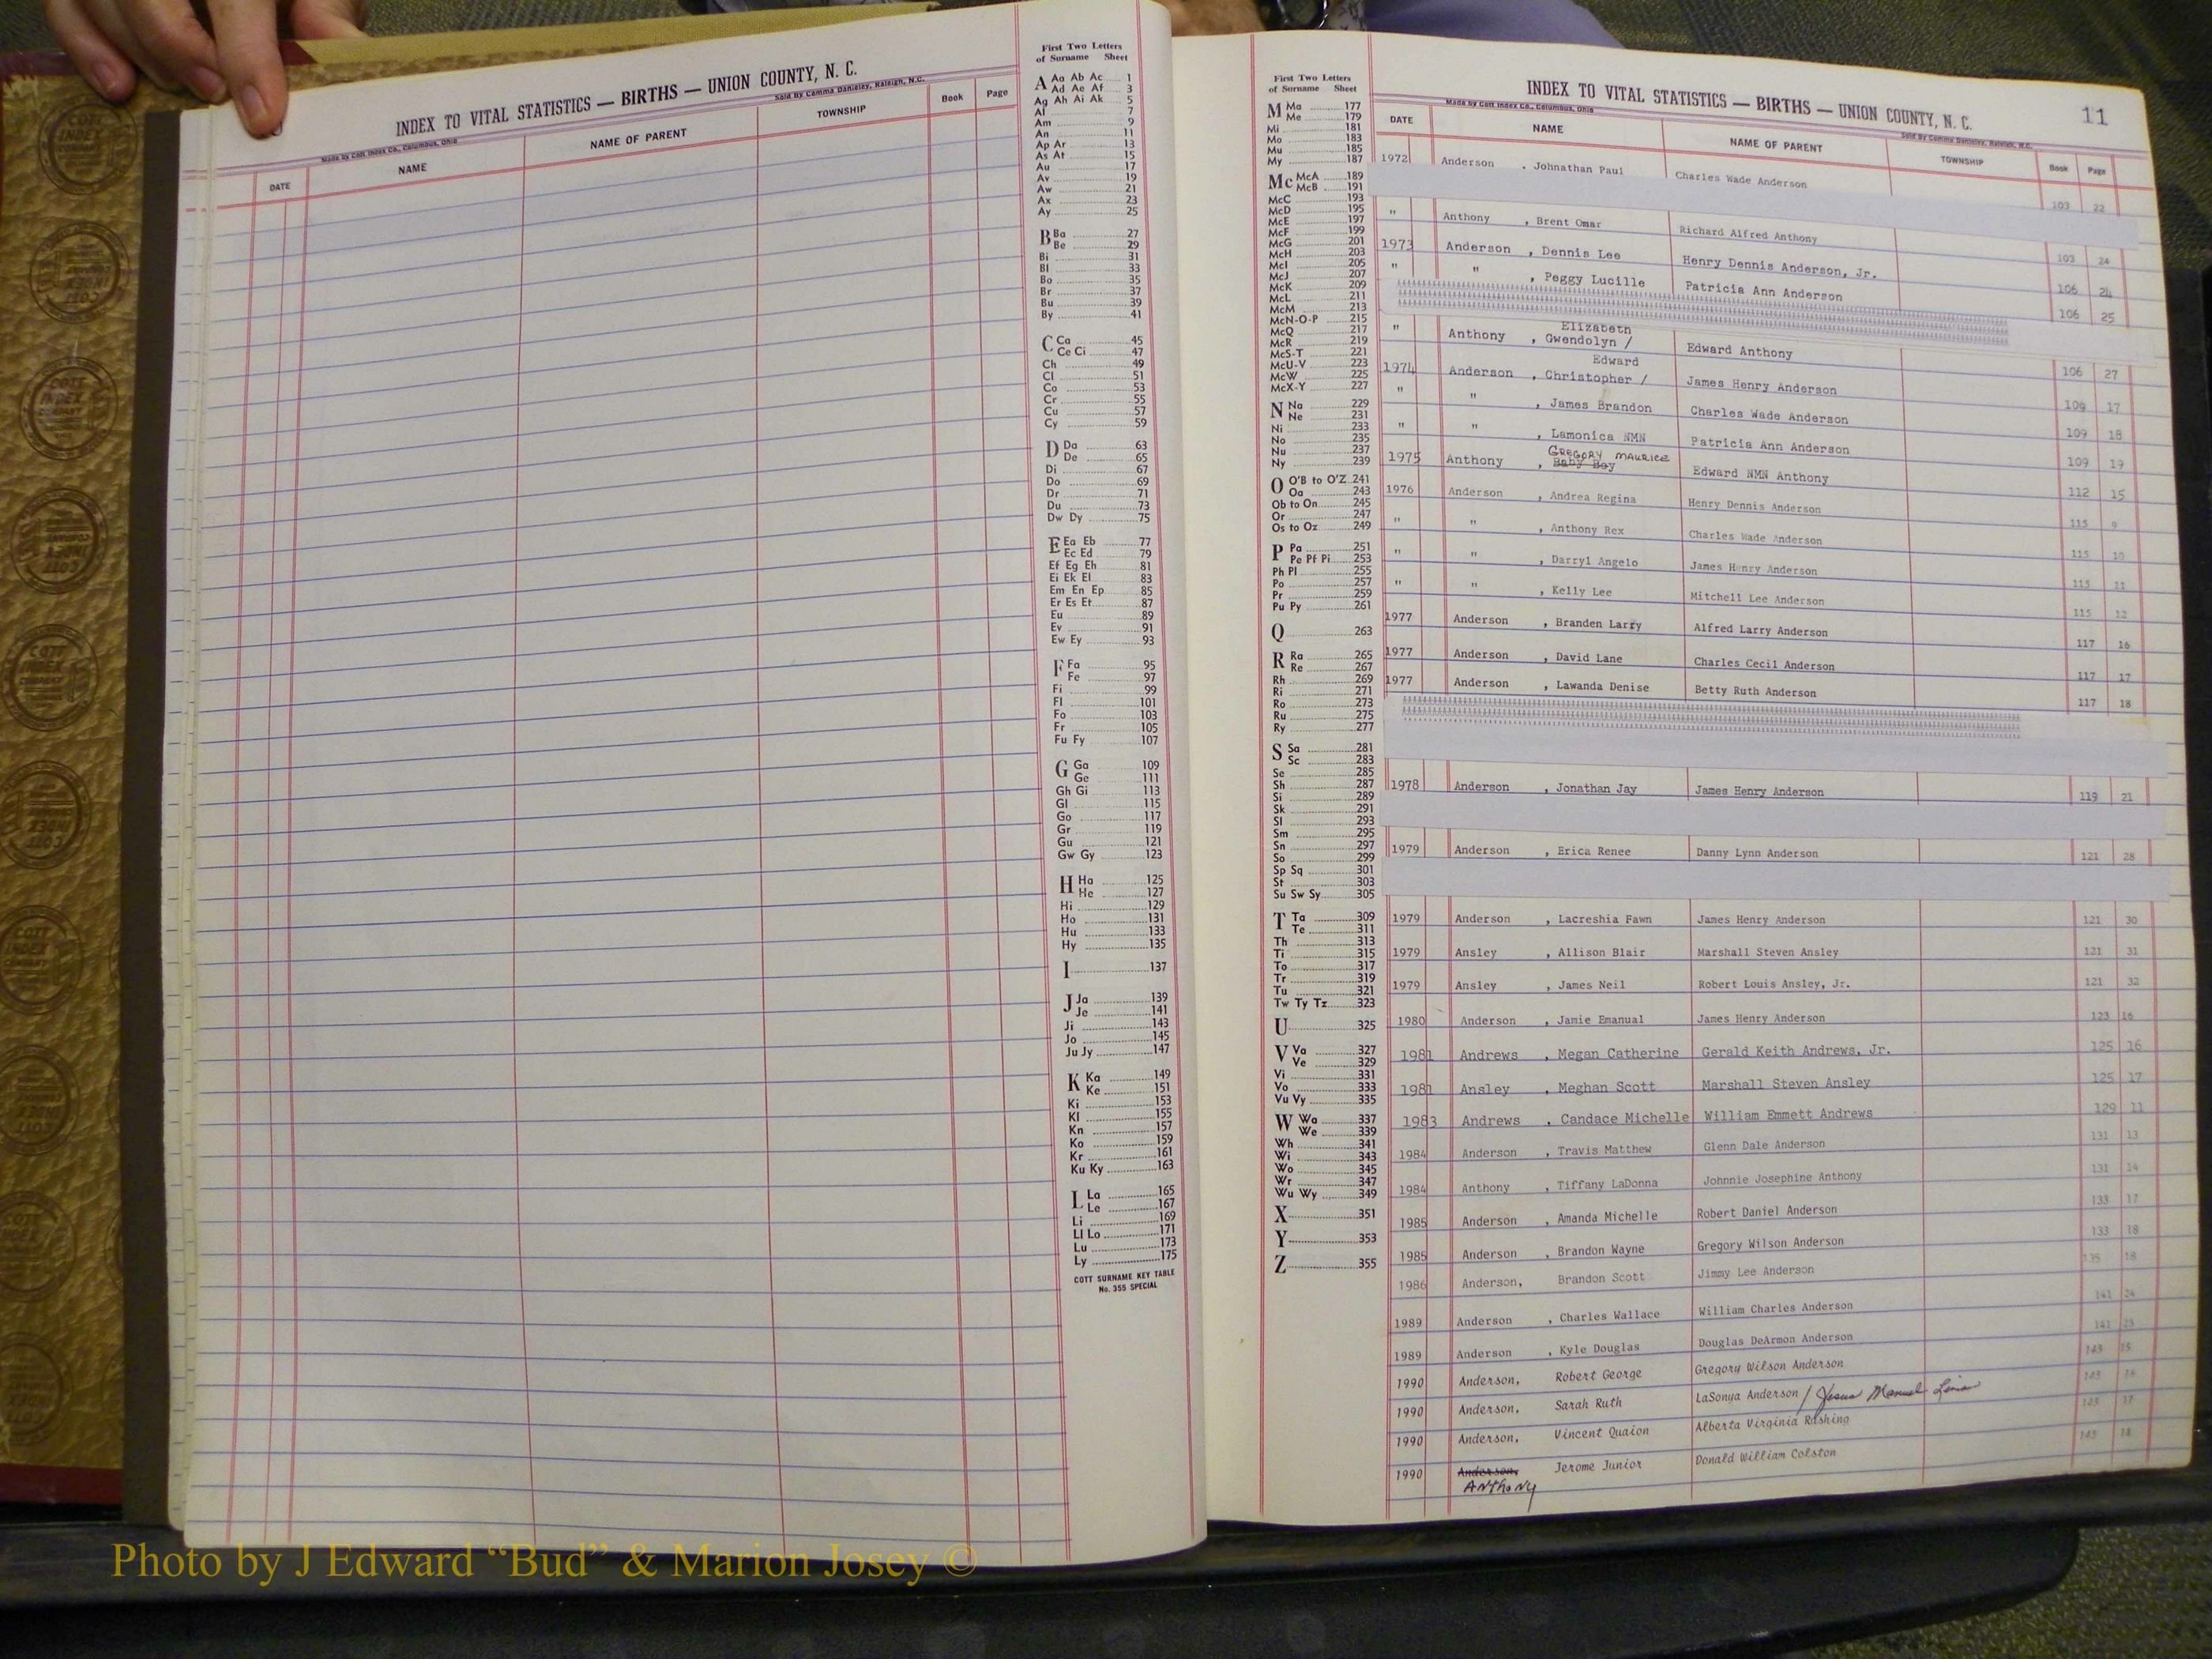 INDEX TO VITAL STATISTICS — BIRTHS — UNION COUNTY, N. C.
Made by Cott Index Co., Columbus, Ohio
Sold By Comma Danieley, Raleigh, N.C.
DATE NAME NAME OF PARENT TOWNSHIP Book Page
First Two Letters
of Surname Sheet
A Aa Ab Ac 1
Ad Ae Af 3
Ag Ah Ai Ak 5
Al 7
Am 9
An 11
Ap Ar 13
As At 15
Au 17
Av 19
Aw 21
Ax 23
Ay 25
B Ba 27
Be 29
Bi 31
Bl 33
Bo 35
Br 37
Bu 39
By 41
C Ca 45
Ce Ci 47
Ch 49
Cl 51
Co 53
Cr 55
Cu 57
Cy 59
D Da 63
De 65
Di 67
Do 69
Dr 71
Du 73
Dw Dy 75
E Ea Eb 77
Ec Ed 79
Ef Eg Eh 81
Ei Ek El 83
Em En Ep 85
Er Es Et 87
Eu 89
Ev 91
Ew Ey 93
F Fa 95
Fe 97
Fi 99
Fl 101
Fo 103
Fr 105
Fu Fy 107
G Ga 109
Ge 111
Gh Gi 113
Gl 115
Go 117
Gr 119
Gu 121
Gw Gy 123
H Ha 125
He 127
Hi 129
Ho 131
Hu 133
Hy 135
I 137
J Ja 139
Je 141
Ji 143
Jo 145
Ju Jy 147
K Ka 149
Ke 151
Ki 153
Kl 155
Kn 157
Ko 159
Kr 161
Ku Ky 163
L La 165
Le 167
Li 169
Ll Lo 171
Lu 173
Ly 175
COTT SURNAME KEY TABLE
No. 355 SPECIAL
First Two Letters
of Surname Sheet
M Ma 177
Me 179
Mi 181
Mo 183
Mu 185
My 187
Mc McA 189
McB 191
McC 193
McD 195
McE 197
McF 199
McG 201
McH 203
McI 205
McJ 207
McK 209
McL 211
McM 213
McN-O-P 215
McQ 217
McR 219
McS-T 221
McU-V 223
McW 225
McX-Y 227
N Na 229
Ne 231
Ni 233
No 235
Nu 237
Ny 239
O O'B to O'Z 241
Oa 243
Ob to On 245
Or 247
Os to Oz 249
P Pa 251
Pe Pf Pi 253
Ph Pl 255
Po 257
Pr 259
Pu Py 261
Q 263
R Ra 265
Re 267
Rh 269
Ri 271
Ro 273
Ru 275
Ry 277
S Sa 281
Sc 283
Se 285
Sh 287
Si 289
Sk 291
Sl 293
Sm 295
Sn 297
So 299
Sp Sq 301
St 303
Su Sw Sy 305
T Ta 309
Te 311
Th 313
Ti 315
To 317
Tr 319
Tu 321
Tw Ty Tz 323
U 325
V Va 327
Ve 329
Vi 331
Vo 333
Vu Vy 335
W Wa 337
We 339
Wh 341
Wi 343
Wo 345
Wr 347
Wu Wy 349
X 351
Y 353
Z 355
INDEX TO VITAL STATISTICS — BIRTHS — UNION COUNTY, N. C. 11
Made by Cott Index Co., Columbus, Ohio
Sold By Comma Danieley, Raleigh, N.C.
DATE NAME NAME OF PARENT TOWNSHIP Book Page
1972 Anderson , Johnathan Paul Charles Wade Anderson 103 22
" Anthony , Brent Omar Richard Alfred Anthony 103 24
1973 Anderson , Dennis Lee Henry Dennis Anderson, Jr. 106 24
" " , Peggy Lucille Patricia Ann Anderson 106 25
Elizabeth
" Anthony , Gwendolyn / Edward Anthony 106 27
Edward
1974 Anderson , Christopher / James Henry Anderson 109 17
" " , James Brandon Charles Wade Anderson 109 18
" " , Lamonica NMN Patricia Ann Anderson 109 19
GREGORY MAURICE
1975 Anthony , Baby Boy Edward NMN Anthony 112 15
1976 Anderson , Andrea Regina Henry Dennis Anderson 115 9
" " , Anthony Rex Charles Wade Anderson 115 10
" " , Darryl Angelo James Henry Anderson 115 11
" " , Kelly Lee Mitchell Lee Anderson 115 12
1977 Anderson , Branden Larry Alfred Larry Anderson 117 16
1977 Anderson , David Lane Charles Cecil Anderson 117 17
1977 Anderson , Lawanda Denise Betty Ruth Anderson 117 18
1978 Anderson , Jonathan Jay James Henry Anderson 119 21
1979 Anderson , Erica Renee Danny Lynn Anderson 121 28
1979 Anderson , Lacreshia Fawn James Henry Anderson 121 30
1979 Ansley , Allison Blair Marshall Steven Ansley 121 31
1979 Ansley , James Neil Robert Louis Ansley, Jr. 121 32
1980 Anderson , Jamie Emanual James Henry Anderson 123 16
1981 Andrews , Megan Catherine Gerald Keith Andrews, Jr. 125 16
1981 Ansley , Meghan Scott Marshall Steven Ansley 125 17
1983 Andrews , Candace Michelle William Emmett Andrews 129 11
1984 Anderson , Travis Matthew Glenn Dale Anderson 131 13
1984 Anthony , Tiffany LaDonna Johnnie Josephine Anthony 131 14
1985 Anderson , Amanda Michelle Robert Daniel Anderson 133 17
1985 Anderson , Brandon Wayne Gregory Wilson Anderson 133 18
1986 Anderson, Brandon Scott Jimmy Lee Anderson 135 18
1989 Anderson , Charles Wallace William Charles Anderson 141 24
1989 Anderson , Kyle Douglas Douglas DeArmon Anderson 141 25
1990 Anderson, Robert George Gregory Wilson Anderson 143 15
1990 Anderson, Sarah Ruth LaSonya Anderson / Jesus Manuel 143 16
1990 Anderson, Vincent Quaion Alberta Virginia Rushing 143 17
1990 Anderson, Jerome Junior Donald William Colston 143 18
ANThoNy
Photo by J Edward “Bud” & Marion Josey ©